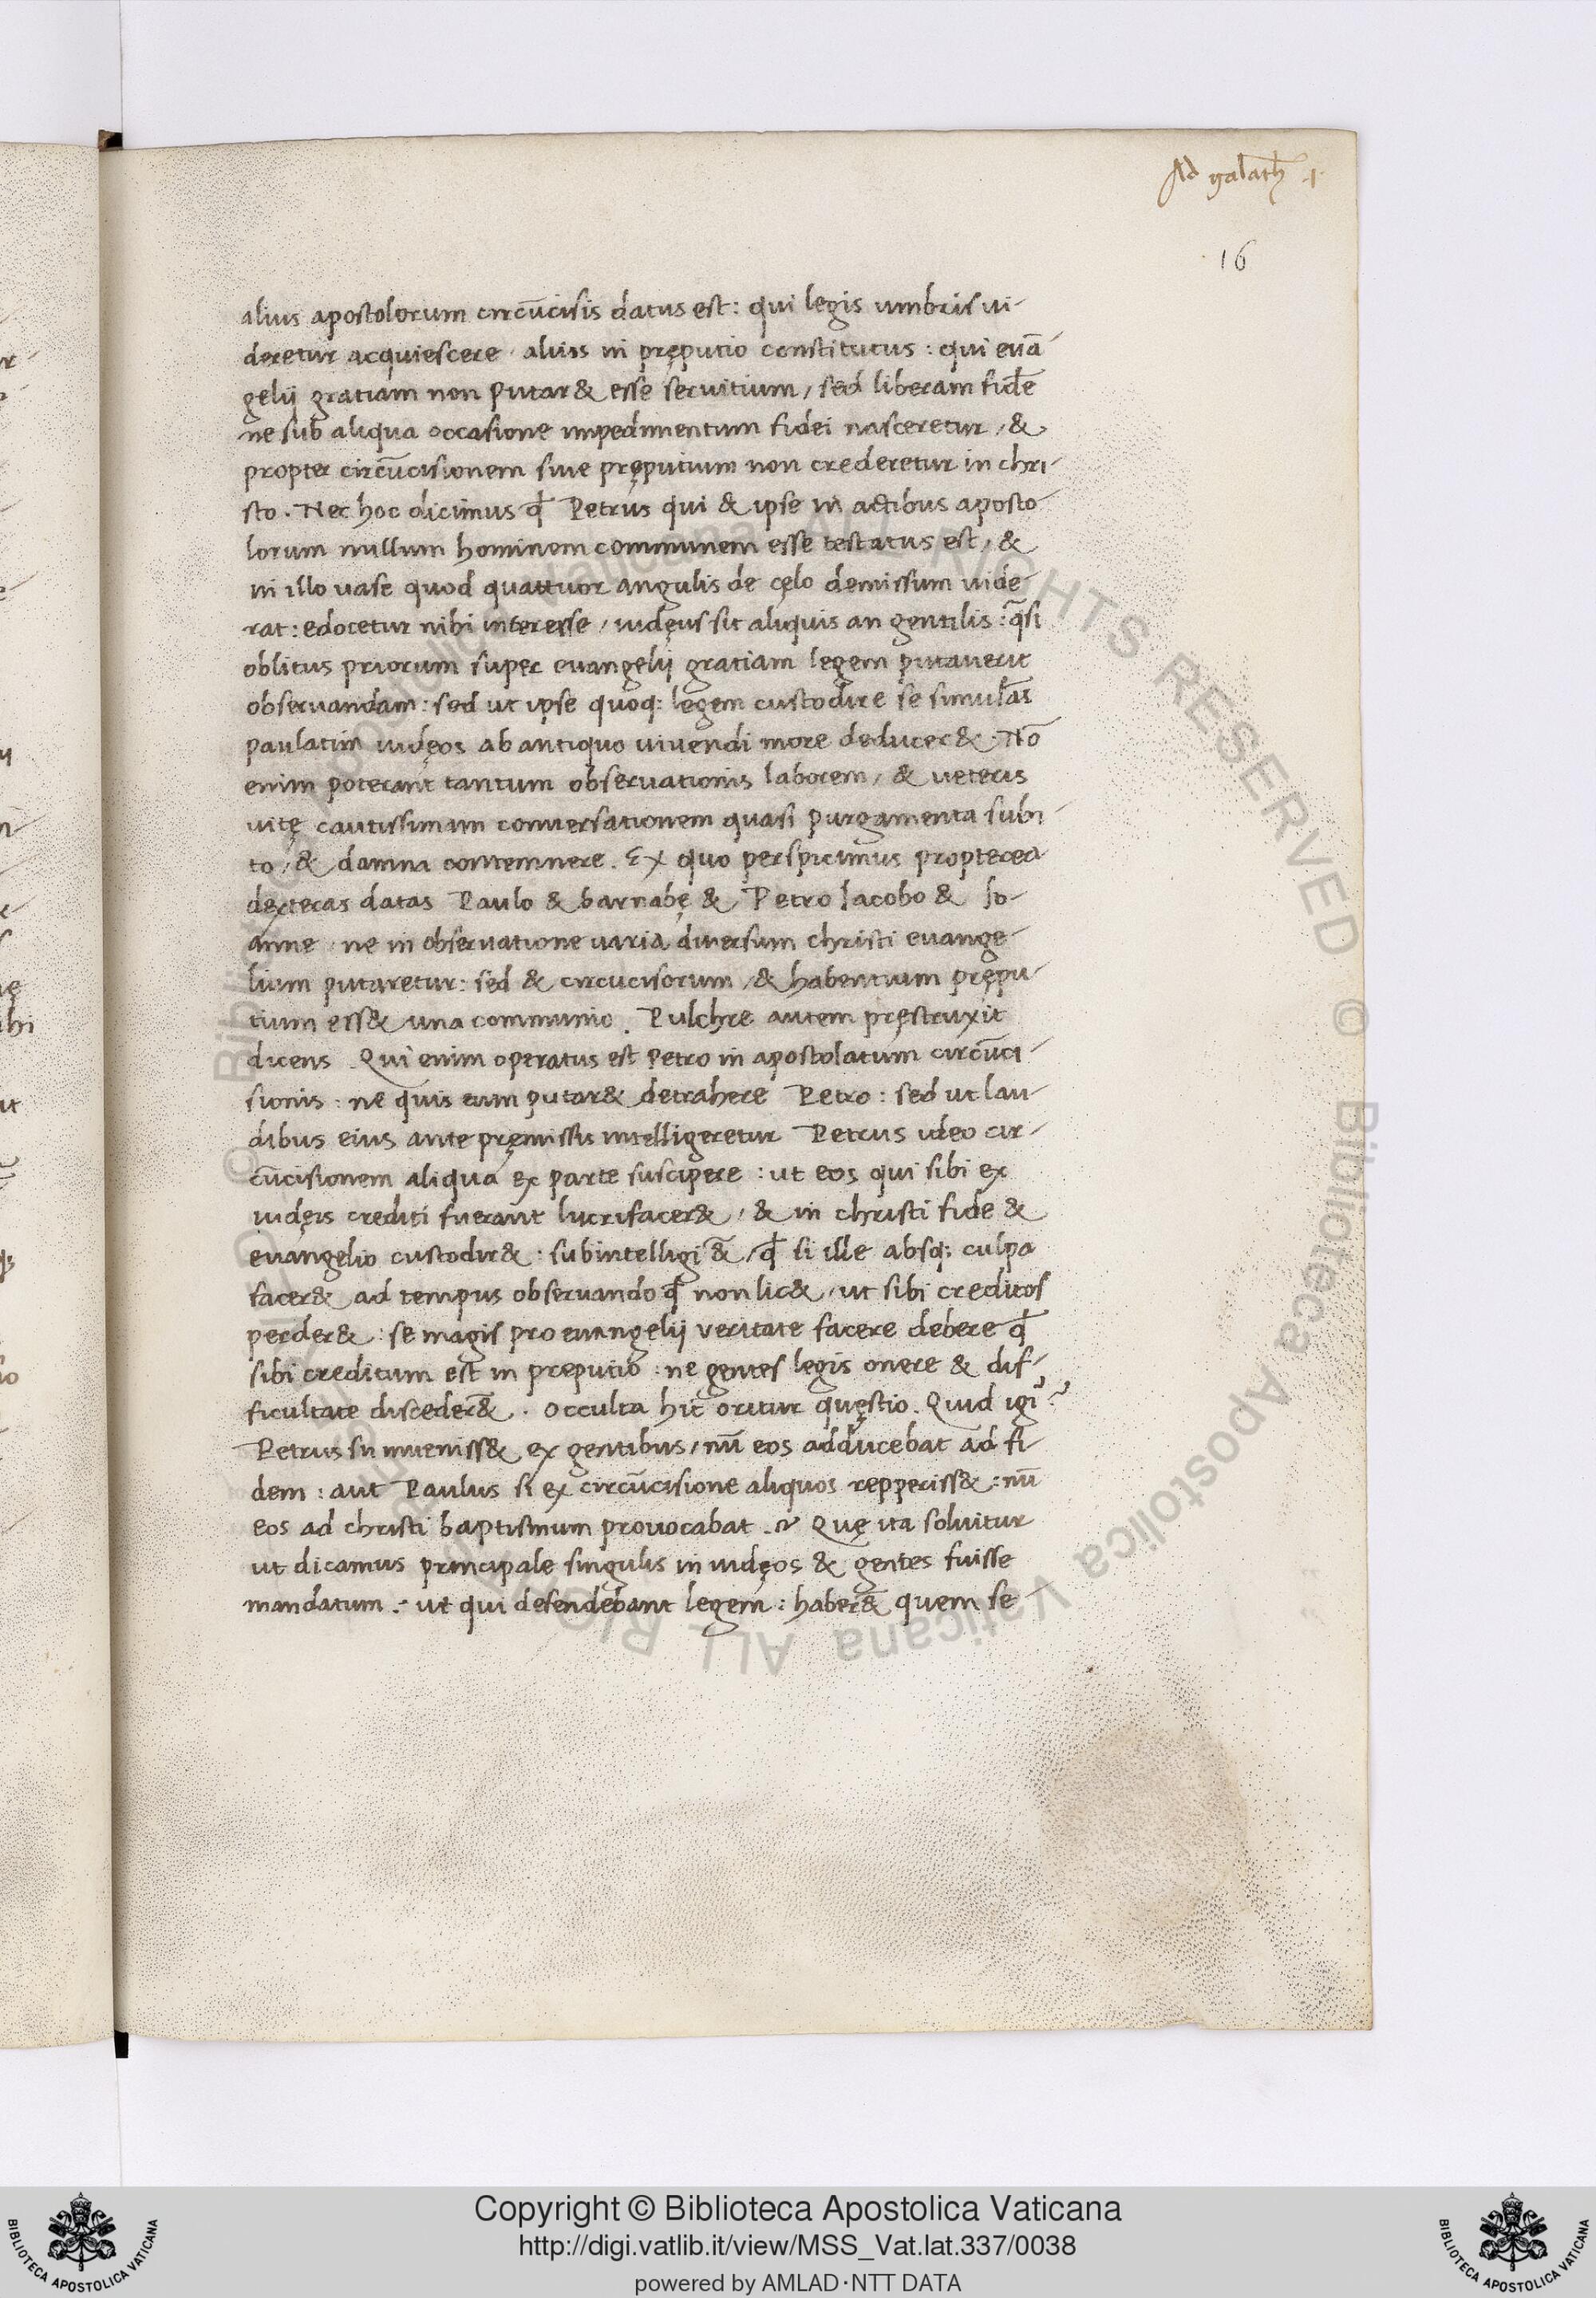 Ad galath̄ .1.
16
alius apostolorum circūcisis datus est: qui legis umbris ui-
deretur acquiescere . alius in pręputio constitutus : qui euā-
gelij gratiam non putar& esse seruitium / sed liberam fidē
ne sub aliqua occasione impedimentum fidei nasceretur / &
propter circūcisionem siue pręputium non crederetur in chri-
sto . Nec hoc dicimus ꝙ Petrus qui & ipse in actibus aposto-
lorum nullum hominem communem esse testatus est / &
in illo uase quod quattuor angulis de cęlo demissum uide-
rat : edocetur nihi interesse / iudęus sit aliquis an gentilis : q̄si
oblitus priorum super euangelij gratiam legem putauerit
obseruandam : sed ut ipse quoq; legem custodire se simulās
paulatim iudęos ab antiquo viuendi more deducer& . Nō
enim poterant tantum obseruationis laborem / & ueteris
uitę cautissimam conuersationem quasi purgamenta subi-
to / & damna contemnere . Ex quo perspicimus propterea
dexteras datas Paulo & barnabę & Petro Iacobo & Io-
anne . ne in obseruatione varia diuersum christi euange-
lium putaretur : sed & circucisorum / & habentium prępu-
tium ess& una communio . Pulchre autem pręstruxit
dicens . Qui enim operatus est Petro in apostolatum circūci-
sionis : ne quis eum putar& detrahere Petro : sed ut lau-
dibus eius ante pręmissis intelligeretur Petrus ideo cir-
cūcisionem aliqua ex parte suscipere : ut eos qui sibi ex
iudęis crediti fuerant lucrifacer& / & in christi fide &
euangelio custodir& : subintelligi &̄ / ꝙ si ille absq; culpa
facer& ad tempus obseruando ꝙ non lic& / ut sibi creditos
perder& : se magis pro euangelij veritate facere debere ꝙ
sibi creditum est in preputio : ne gentes legis onere & dif-
ficultate disceder&̄ . Occulta hic oritur quęstio . Quid igi᷑ ?
Petrus si inueniss& ex gentibus / nū eos adducebat ad fi-
dem : aut Paulus si ex circūcisione aliquos repperiss& : nū
eos ad christi baptismum prouocabat .? Quę ita soluitur
ut dicamus principale singulis in iudęos & gentes fuisse
mandatum . ut qui defendebant legem : haber&̄ quem se-
Copyright © Biblioteca Apostolica Vaticana
http://digi.vatlib.it/view/MSS_Vat.lat.337/0038
powered by AMLAD·NTT DATA